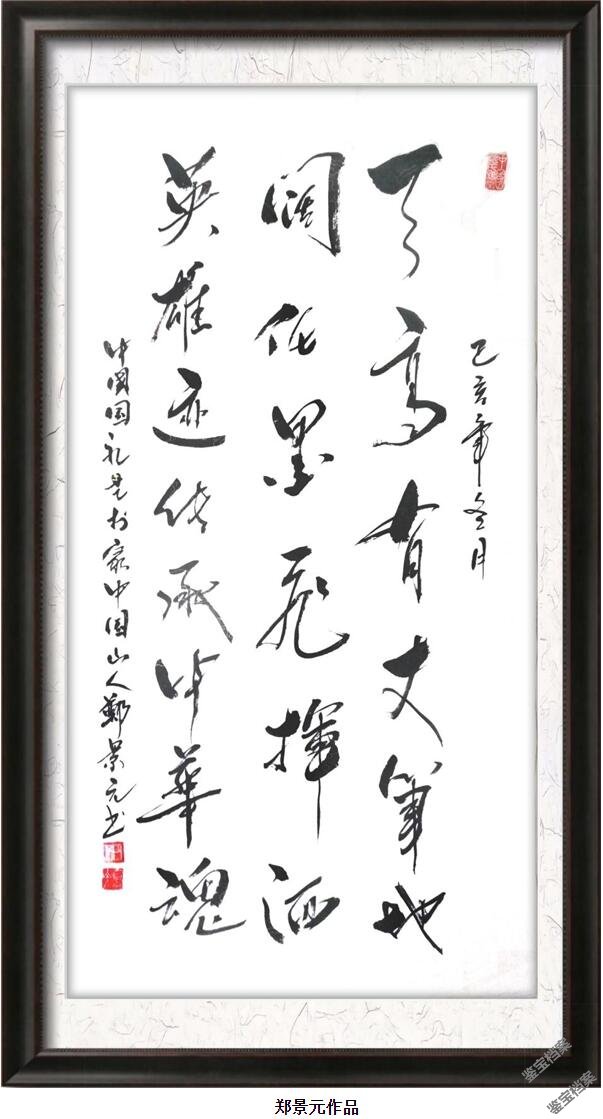 己亥年冬月
天高有丈筆地
阔任墨飛揮洒
英雄迹传承中華魂
中國国礼艺术家中国山人鄭景元书
鉴宝档案
鉴宝档案
郑景元作品